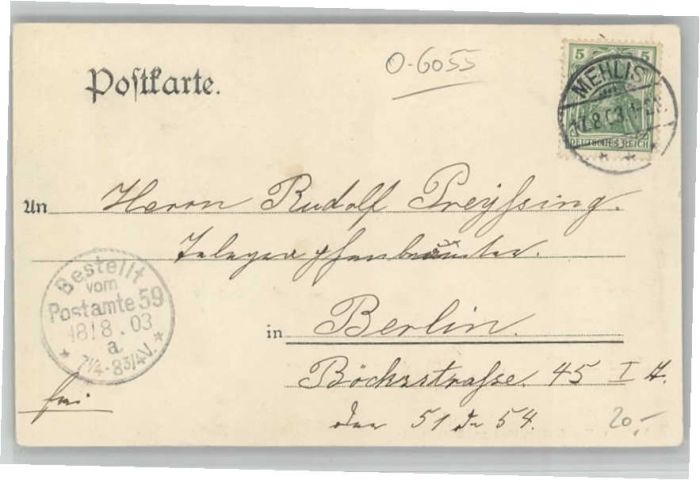 O-6055
Postkarte.
5 5
MEHLIS
17.8.03
DEUTSCHES REICH
An Herrn Rudolf Preyssing.
Telegraphenbeamter.
Bestellt
vom
Postamte 59
18 8 . 03
a.
7 1/4 - 8 3/4 V.
in Berlin.
Böckstrasse. 45 I
frei
51 54.
20,-